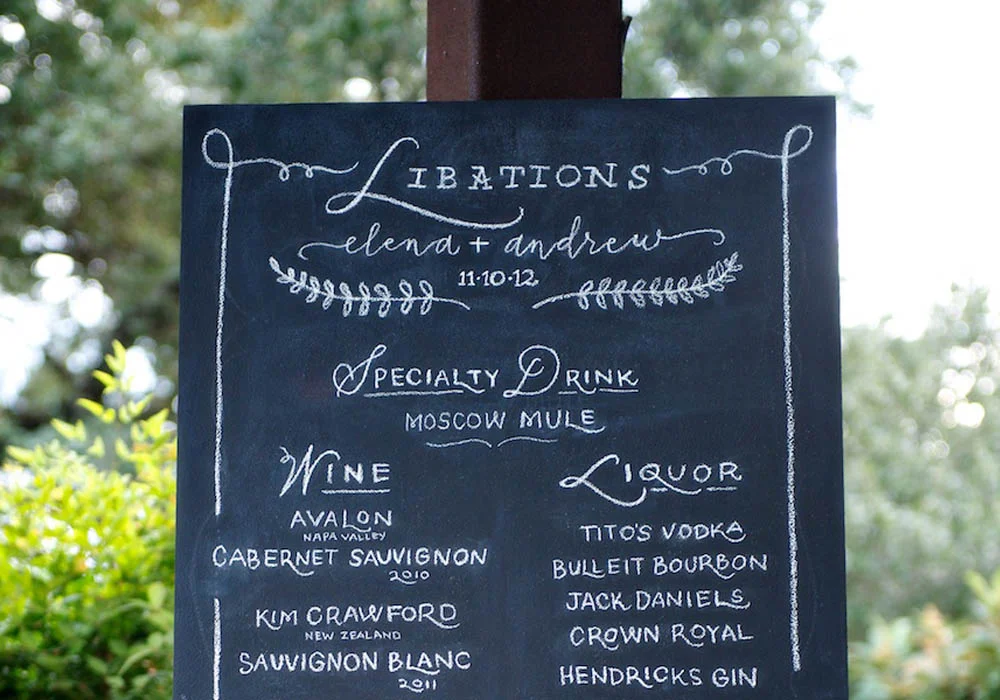 LIBATIONS
elena + andrew
11·10·12
SPECIALTY DRINK
MOSCOW MULE
WINE
AVALON
NAPA VALLEY
CABERNET SAUVIGNON
2010
KIM CRAWFORD
NEW ZEALAND
SAUVIGNON BLANC
2011
LIQUOR
TITO'S VODKA
BULLEIT BOURBON
JACK DANIELS
CROWN ROYAL
HENDRICKS GIN